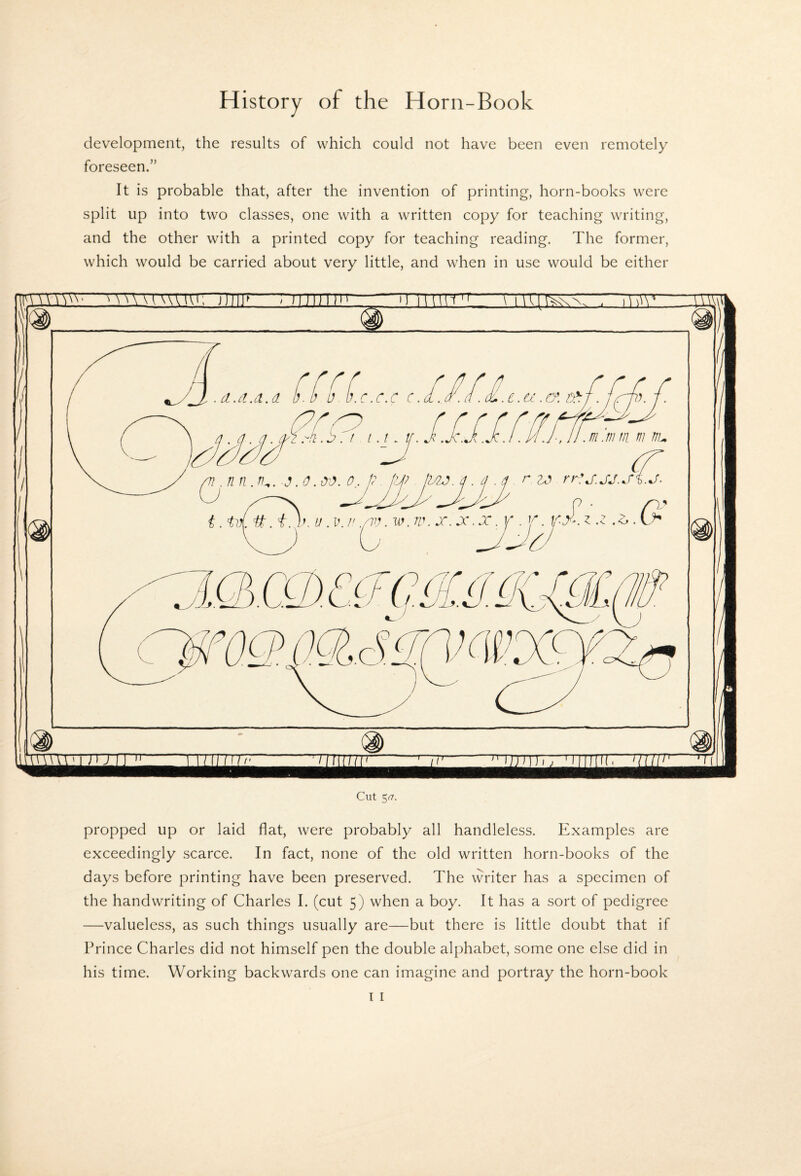 History of the Horn-Book
development, the results of which could not have been even remotely
foreseen.”
It is probable that, after the invention of printing, horn-books were
split up into two classes, one with a written copy for teaching writing,
and the other with a printed copy for teaching reading. The former,
which would be carried about very little, and when in use would be either
A.B.C.D.E.F.G.H.I.K.L.M.
N.O.P.Q.R.S.T.V.W.X.Y.Z.
Cut 5a.
propped up or laid flat, were probably all handleless. Examples are
exceedingly scarce. In fact, none of the old written horn-books of the
days before printing have been preserved. The writer has a specimen of
the handwriting of Charles I. (cut 5) when a boy. It has a sort of pedigree
—valueless, as such things usually are—but there is little doubt that if
Prince Charles did not himself pen the double alphabet, some one else did in
his time. Working backwards one can imagine and portray the horn-book
11